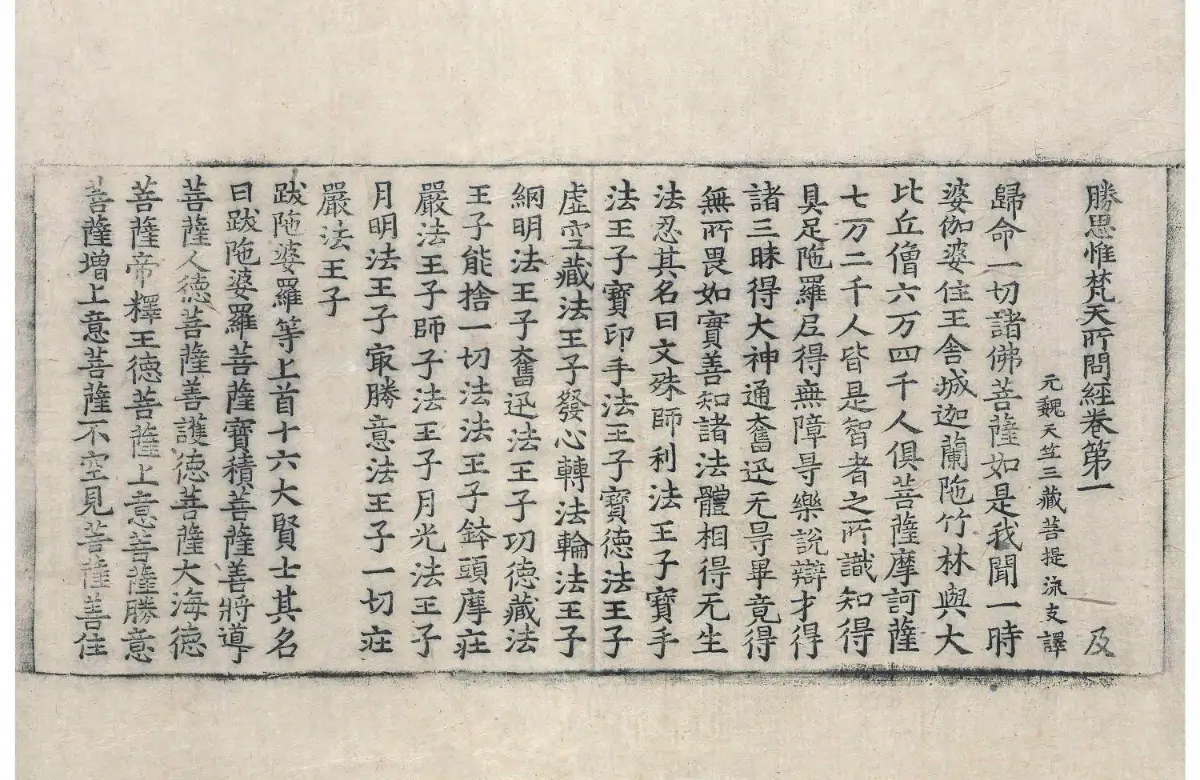 勝思惟梵天所問經卷第一 及
元魏天竺三藏菩提流支譯
歸命一切諸佛菩薩如是我聞一時
婆伽婆住王舍城迦蘭陁竹林與大
比丘僧六万四千人俱菩薩摩訶薩
七万二千人皆是智者之所識知得
具足陁羅尼得無障㝵樂說辯才得
諸三昧得大神通奮迅无㝵畢竟得
無所畏如實善知諸法體相得无生
法忍其名曰文殊師利法王子寶手
法王子寶印手法王子寶德法王子
虛空藏法王子發心轉法輪法王子
網明法王子奮迅法王子功德藏法
王子能捨一切法法王子鉢頭摩莊
嚴法王子師子法王子月光法王子
月明法王子㝡勝意法王子一切莊
嚴法王子
跋陁婆羅等上首十六大賢士其名
曰跋陁婆羅菩薩寶積菩薩善將導
菩薩人德菩薩善護德菩薩大海德
菩薩帝釋王德菩薩上意菩薩勝意
菩薩增上意菩薩不空見菩薩善住